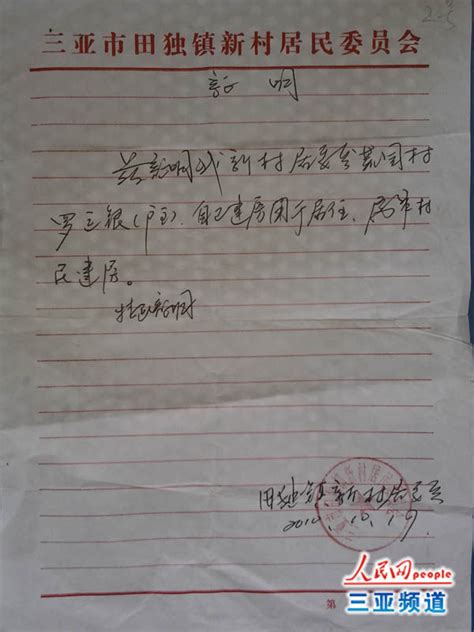 三亚市田独镇新村居民委员会
证明
兹证明我新村居委会黄园村
罗三银(户主),自己建房用于居住,属本村
民建房。
特此证明
田独镇新村居委会
2010.10.19
第
人民网people
三亚频道